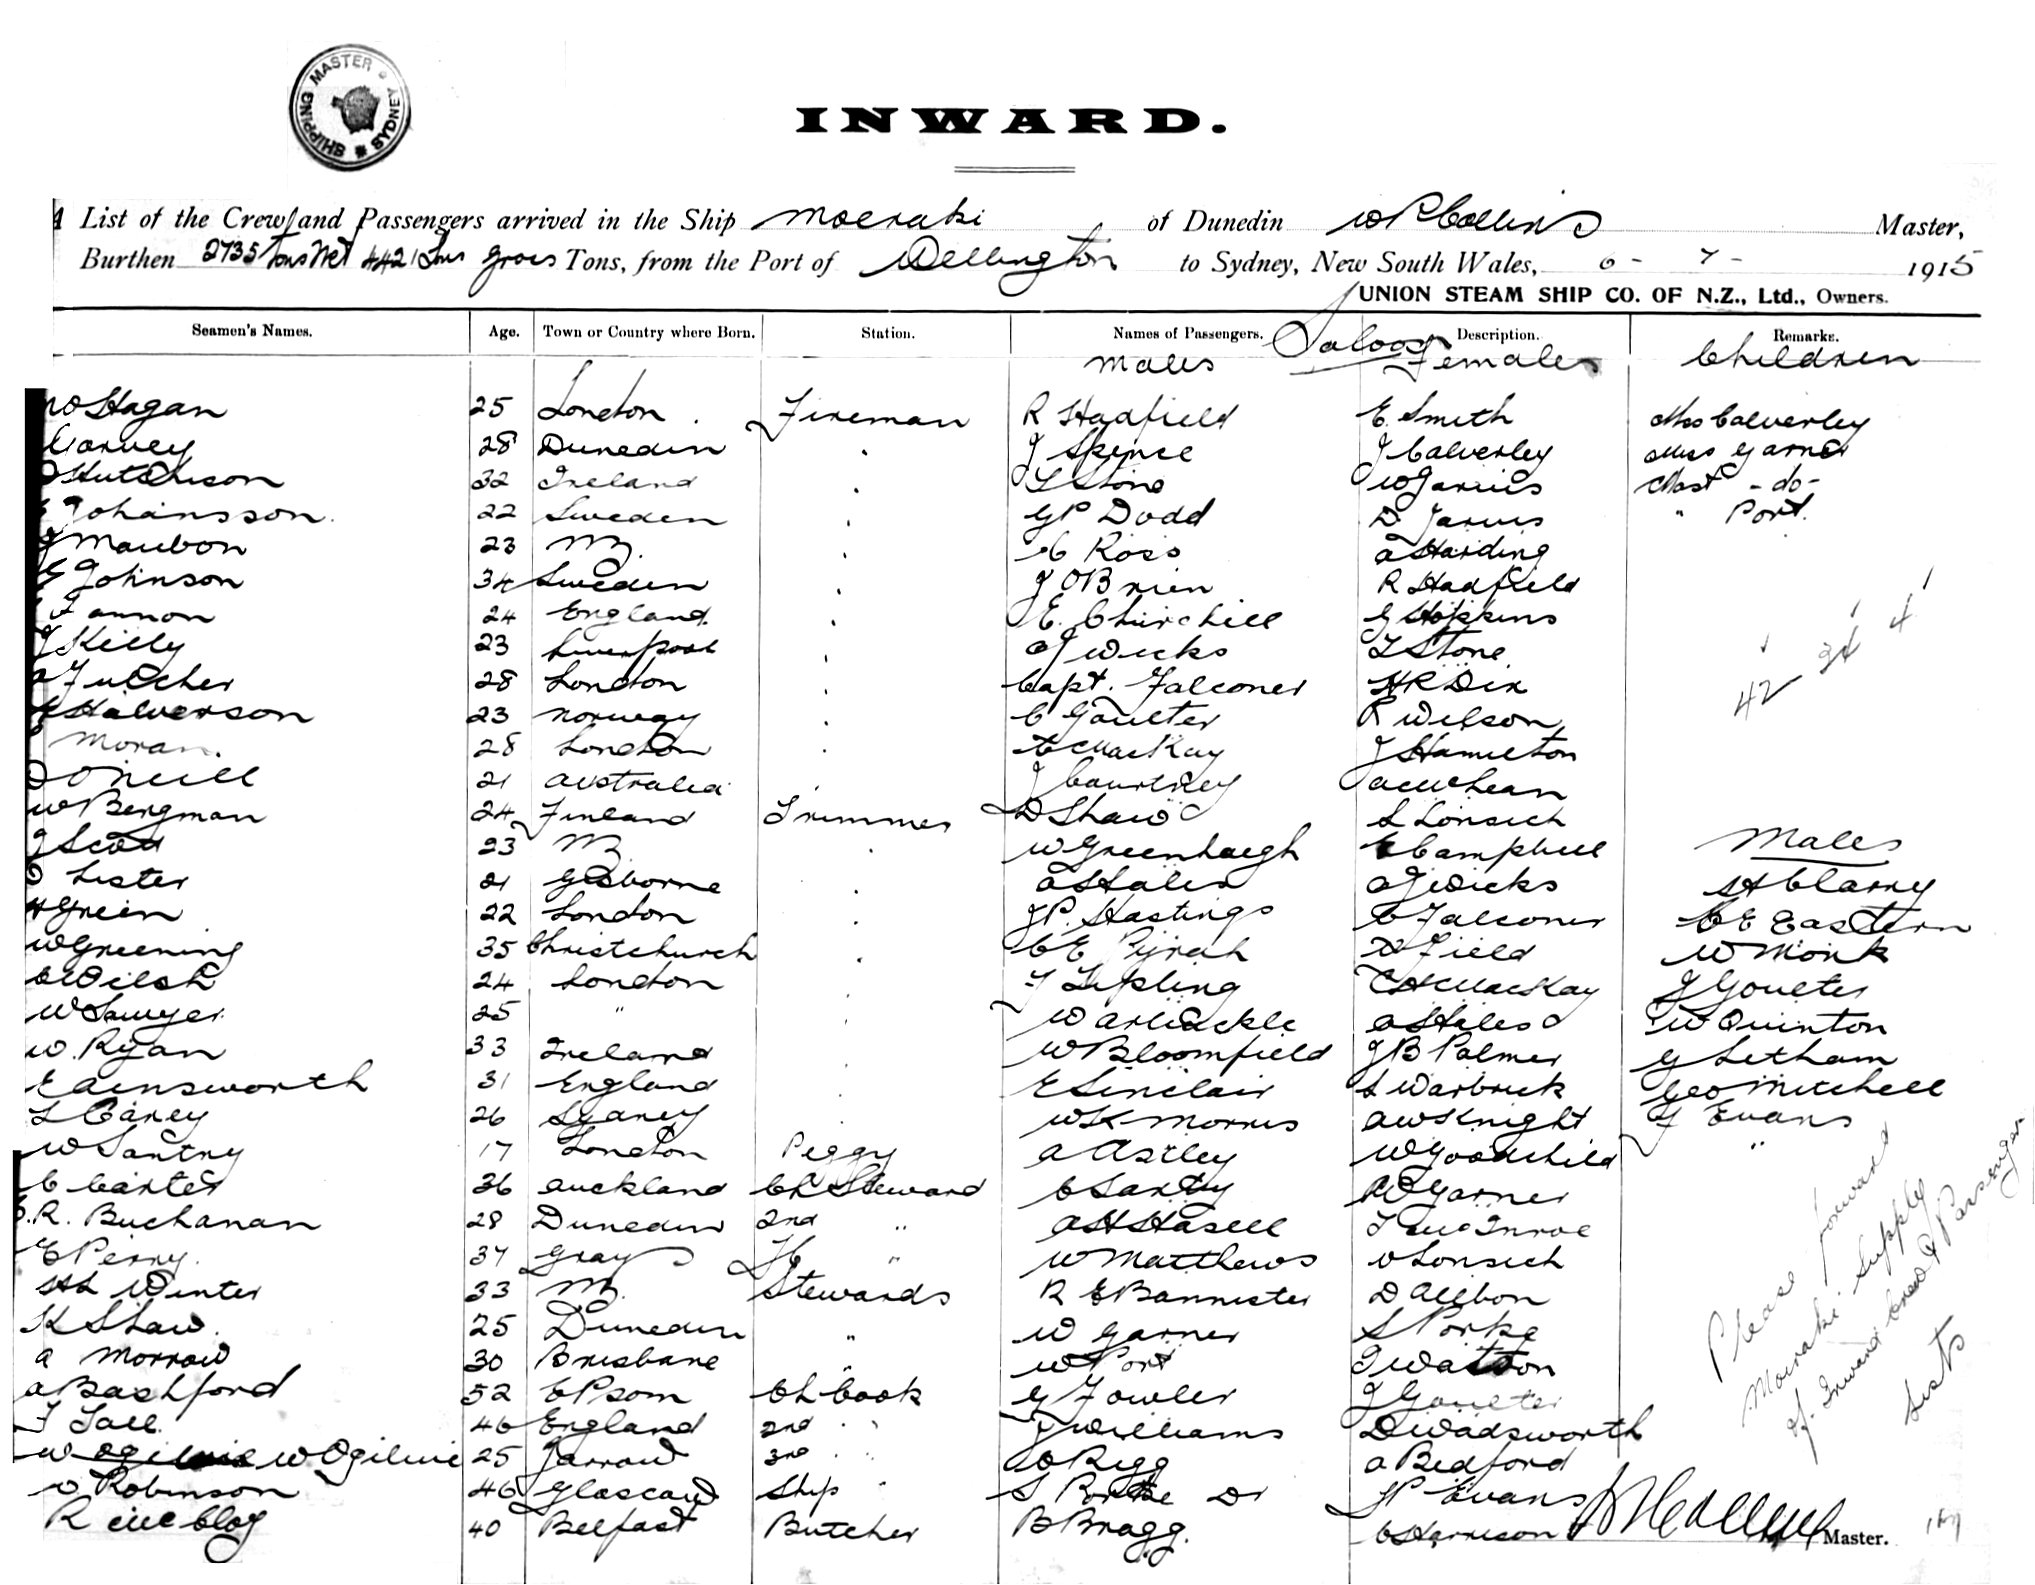 MASTER SHIPPING SYDNEY
INWARD.
A List of the Crew and Passengers arrived in the Ship Moeraki of Dunedin W P Collins Master,
Burthen 2735 Tons Net 4421 Tons gross Tons, from the Port of Wellington to Sydney, New South Wales, 6 - 7 - 1915
UNION STEAM SHIP CO. OF N.Z., Ltd., Owners.
Seamen's Names. Age. Town or Country where Born. Station. Names of Passengers. Description. Remarks.
Males Saloon Females Children
Hagan 25 London Fireman R Hadfield E. Smith Miss Calverley
Carvey 28 Dunedin J Spence J Calverley Miss Garner
Hutchison 32 Ireland L Stone W Jarvis Mast - do -
Johansson. 22 Sweden G P Dodd D Jarvis " Port.
Maubon 23 C Ross A Harding
Johnson 34 Sweden J O'Brien R Hadfield
Fannon 24 England. E. Churchill G Hopkins
J Kelly 23 Liverpool A J Wicks L Stone
A Fulcher 28 London Capt. Falconer H R Dix
Halverson 23 Norway C Goulter R Wilson 42 34 4
Moran. 28 London C MacKay J Hamilton
O'Neill 21 Australia J Courtney A McWhean
W Bergman 24 Finland Trimmer D Shaw L Lonsich
J Scott 23 W Greenhaegh E Campbell Males
Lister 21 Gisborne A Hales A J Wicks H Clarry
H Green 22 London J P. Hastings C Falconer C E Eastern
W Greening 35 Christchurch C E Pyrah D Field W Monk
C Welsh 24 London T Lipling C H MacKay J Goulter
W Sawyer. 25 " W Arbuckle A Hales W Quinton
W. Ryan 33 Ireland W Bloomfield J B Palmer G Letham
E Ainsworth 31 England E Sinclair S Warbrick Geo Mitchell
L Carey 26 Sydney W K Morris A W Knight J Evans
W Santry 17 London Peggy A Astley W Goodchild "
C Carter 36 Auckland Ch Steward C Saxby W Garner
R. Buchanan 28 Dunedin 2nd " A H Hasell
E Perry. 37 Grays " W Matthews V Lonsich
H L Winter 33 Stewards R E Bannister D Allbon
K Shaw. 25 Dunedin " W Garner S Porke
A Morrow 30 Brisbane " W Port J Watson
A Bashford 52 Epsom Ch Cook G Fowler J Goulter
T Tall. 46 England 2nd " J Williams D Wadsworth
W Ogilvie W Ogilvie 25 Jarrow 3rd " O Rigg A Bedford
W Robinson 46 Glascow Ship " S Porke Dr J P Evans
R McCloy 40 Belfast Butcher B Bragg. C Harrison Master.
Please forward
Moeraki supply
of Inward Crew & Passenger
Lists